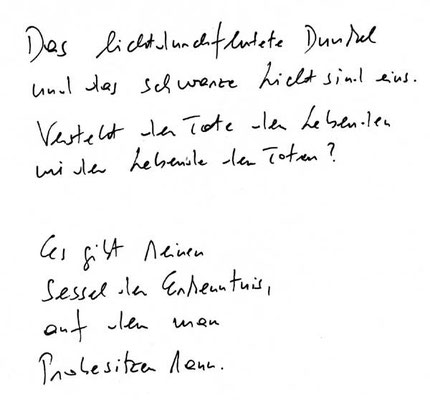 Das lichtdurchflutete Dunkel
und das schwarze Licht sind eins.
Versteht der Tote den Lebenden
wie der Lebende den Toten?
Es gibt keinen
Sessel der Erkenntnis,
auf dem man
Probesitzen kann.